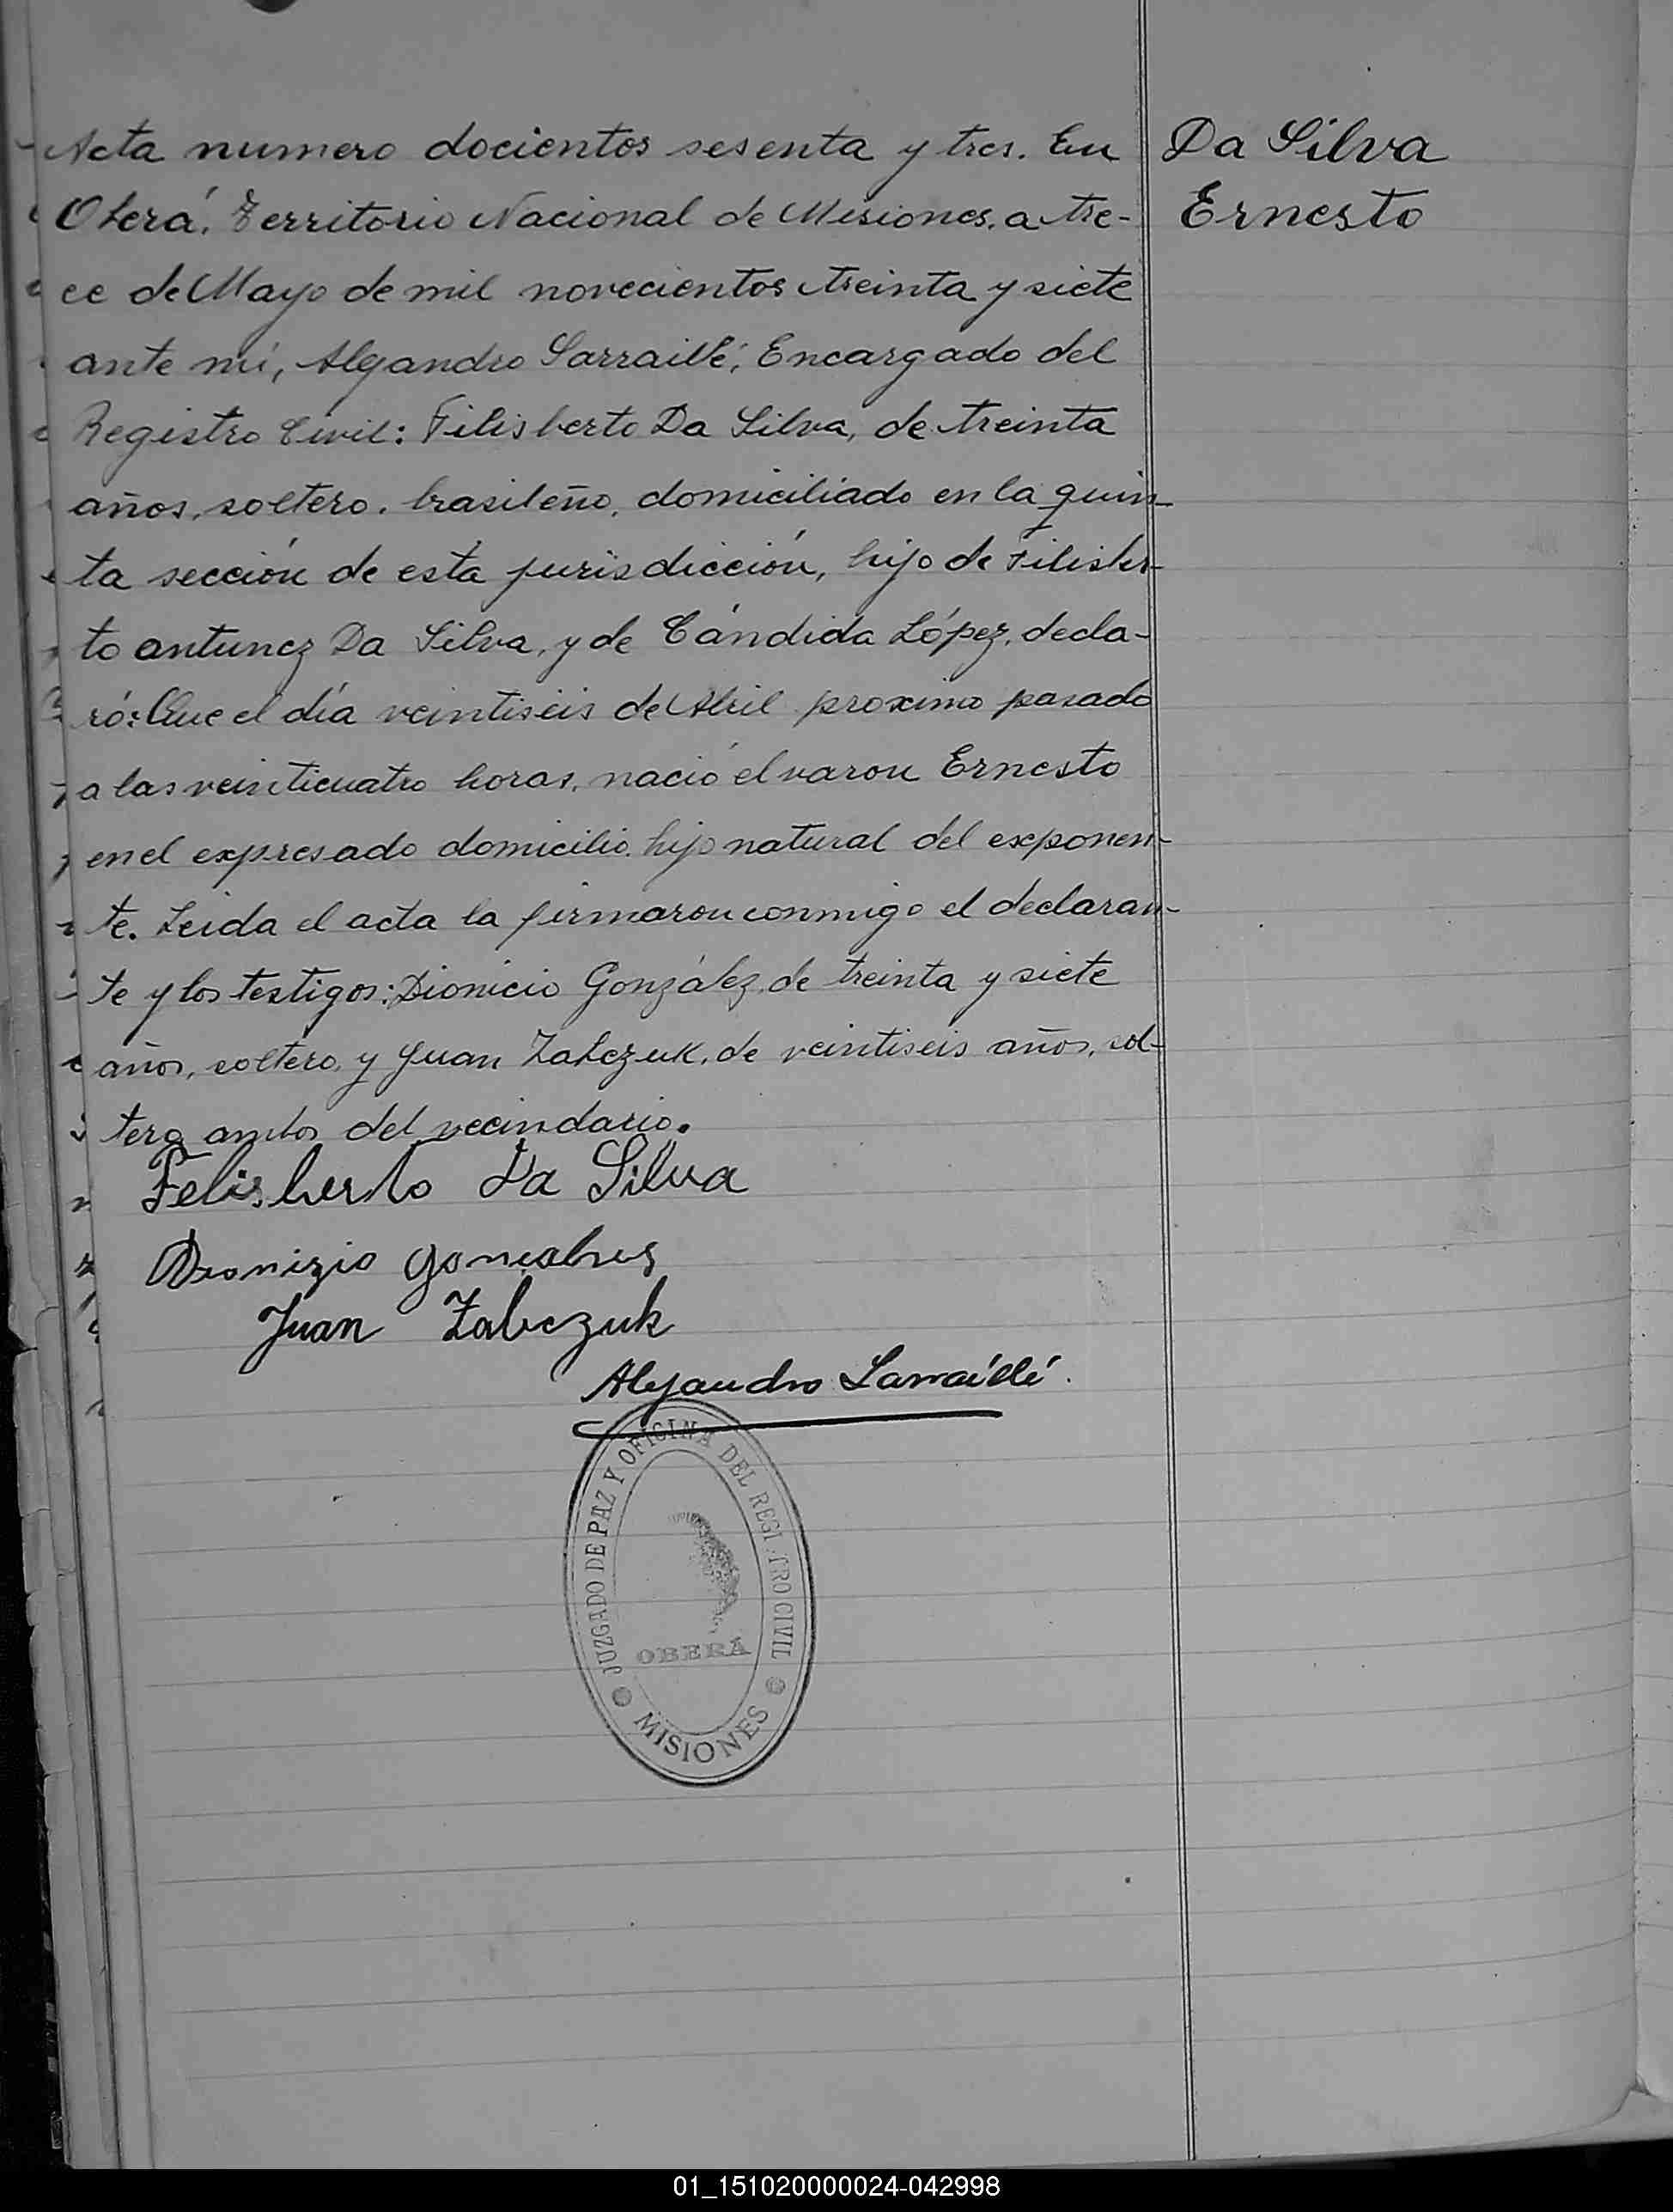 Acta numero docientos sesenta y tres. En
Oberá, Territorio Nacional de Misiones, a tre-
ce de Mayo de mil novecientos treinta y siete
ante mí, Alejandro Sarraillé, Encargado del
Registro Civil: Filisberto Da Silva, de treinta
años, soltero, brasileño, domiciliado en la quin-
ta sección de esta jurisdicción, hijo de Filisber-
to antunez Da Silva, y de Cándida López, decla-
ró: Que el día veintiseis de Abril proximo pasado
a las veinticuatro horas, nació el varon Ernesto
en el expresado domicilio, hijo natural del exponen-
te. Leida el acta la firmaron conmigo el declaran-
te y los testigos: Dionicio González, de treinta y siete
años, soltero, y Juan Zabczuk, de veintiseis años, sol-
tero, ambos del vecindario.
Felisberto Da Silva
Dionizio Goncalves
Juan Zabczuk
Alejandro Sarraillé.
Da Silva
Ernesto
JUZGADO DE PAZ Y OFICINA DEL REGI TRO CIVIL
OBERÁ
MISIONES
01_151020000024-042998